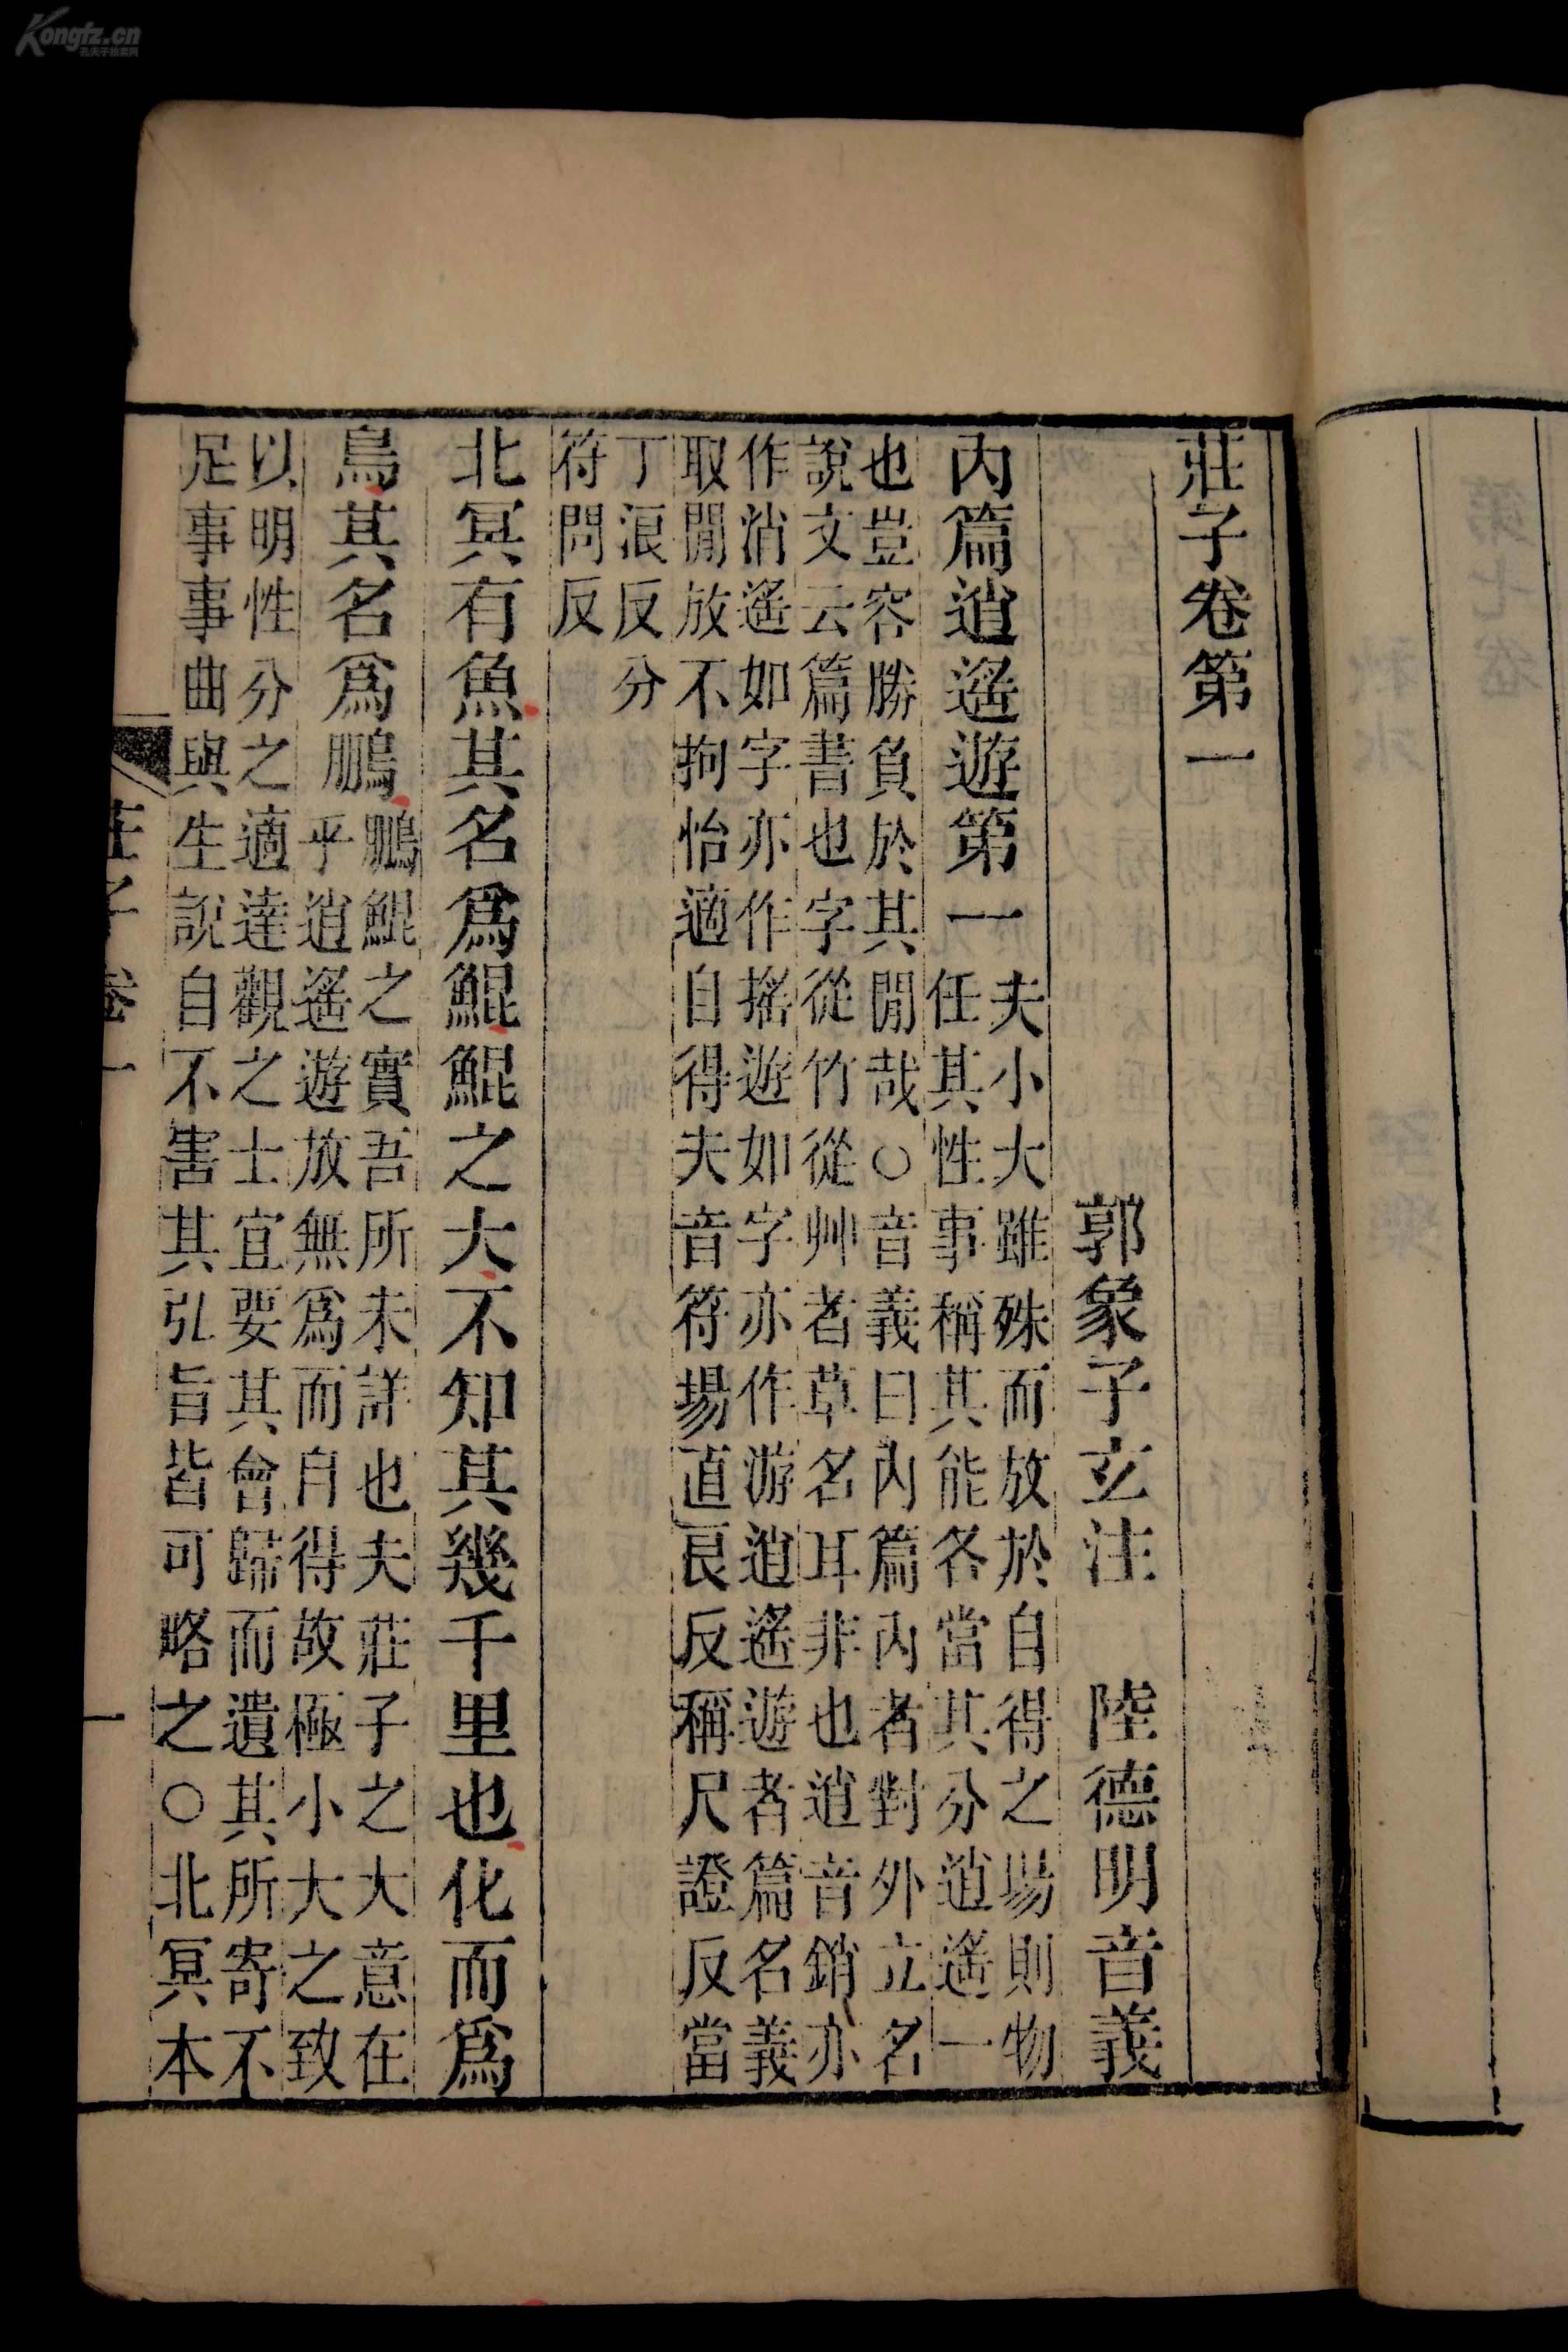 Kongfz.cn
莊子卷第一
郭象子玄注 陸德明音義
內篇逍遙遊第一 夫小大雖殊而放於自得之場則物
任其性事稱其能各當其分逍遙一
也豈容勝負於其閒哉○音義曰內篇內者對外立名
說文云篇書也字從竹從艸者草名耳非也逍音銷亦
作消遙如字亦作搖遊如字亦作游逍遙遊者篇名義
取閒放不拘怡適自得夫音符場直良反稱尺證反當
丁浪反分
符問反
北冥有魚其名爲鯤鯤之大不知其幾千里也化而爲
鳥其名爲鵬 鵬鯤之實吾所未詳也夫莊子之大意在
乎逍遙遊放無爲而自得故極小大之致
以明性分之適達觀之士宜要其會歸而遺其所寄不
足事事曲與生說自不害其弘旨皆可略之○北冥本
莊子卷一
一